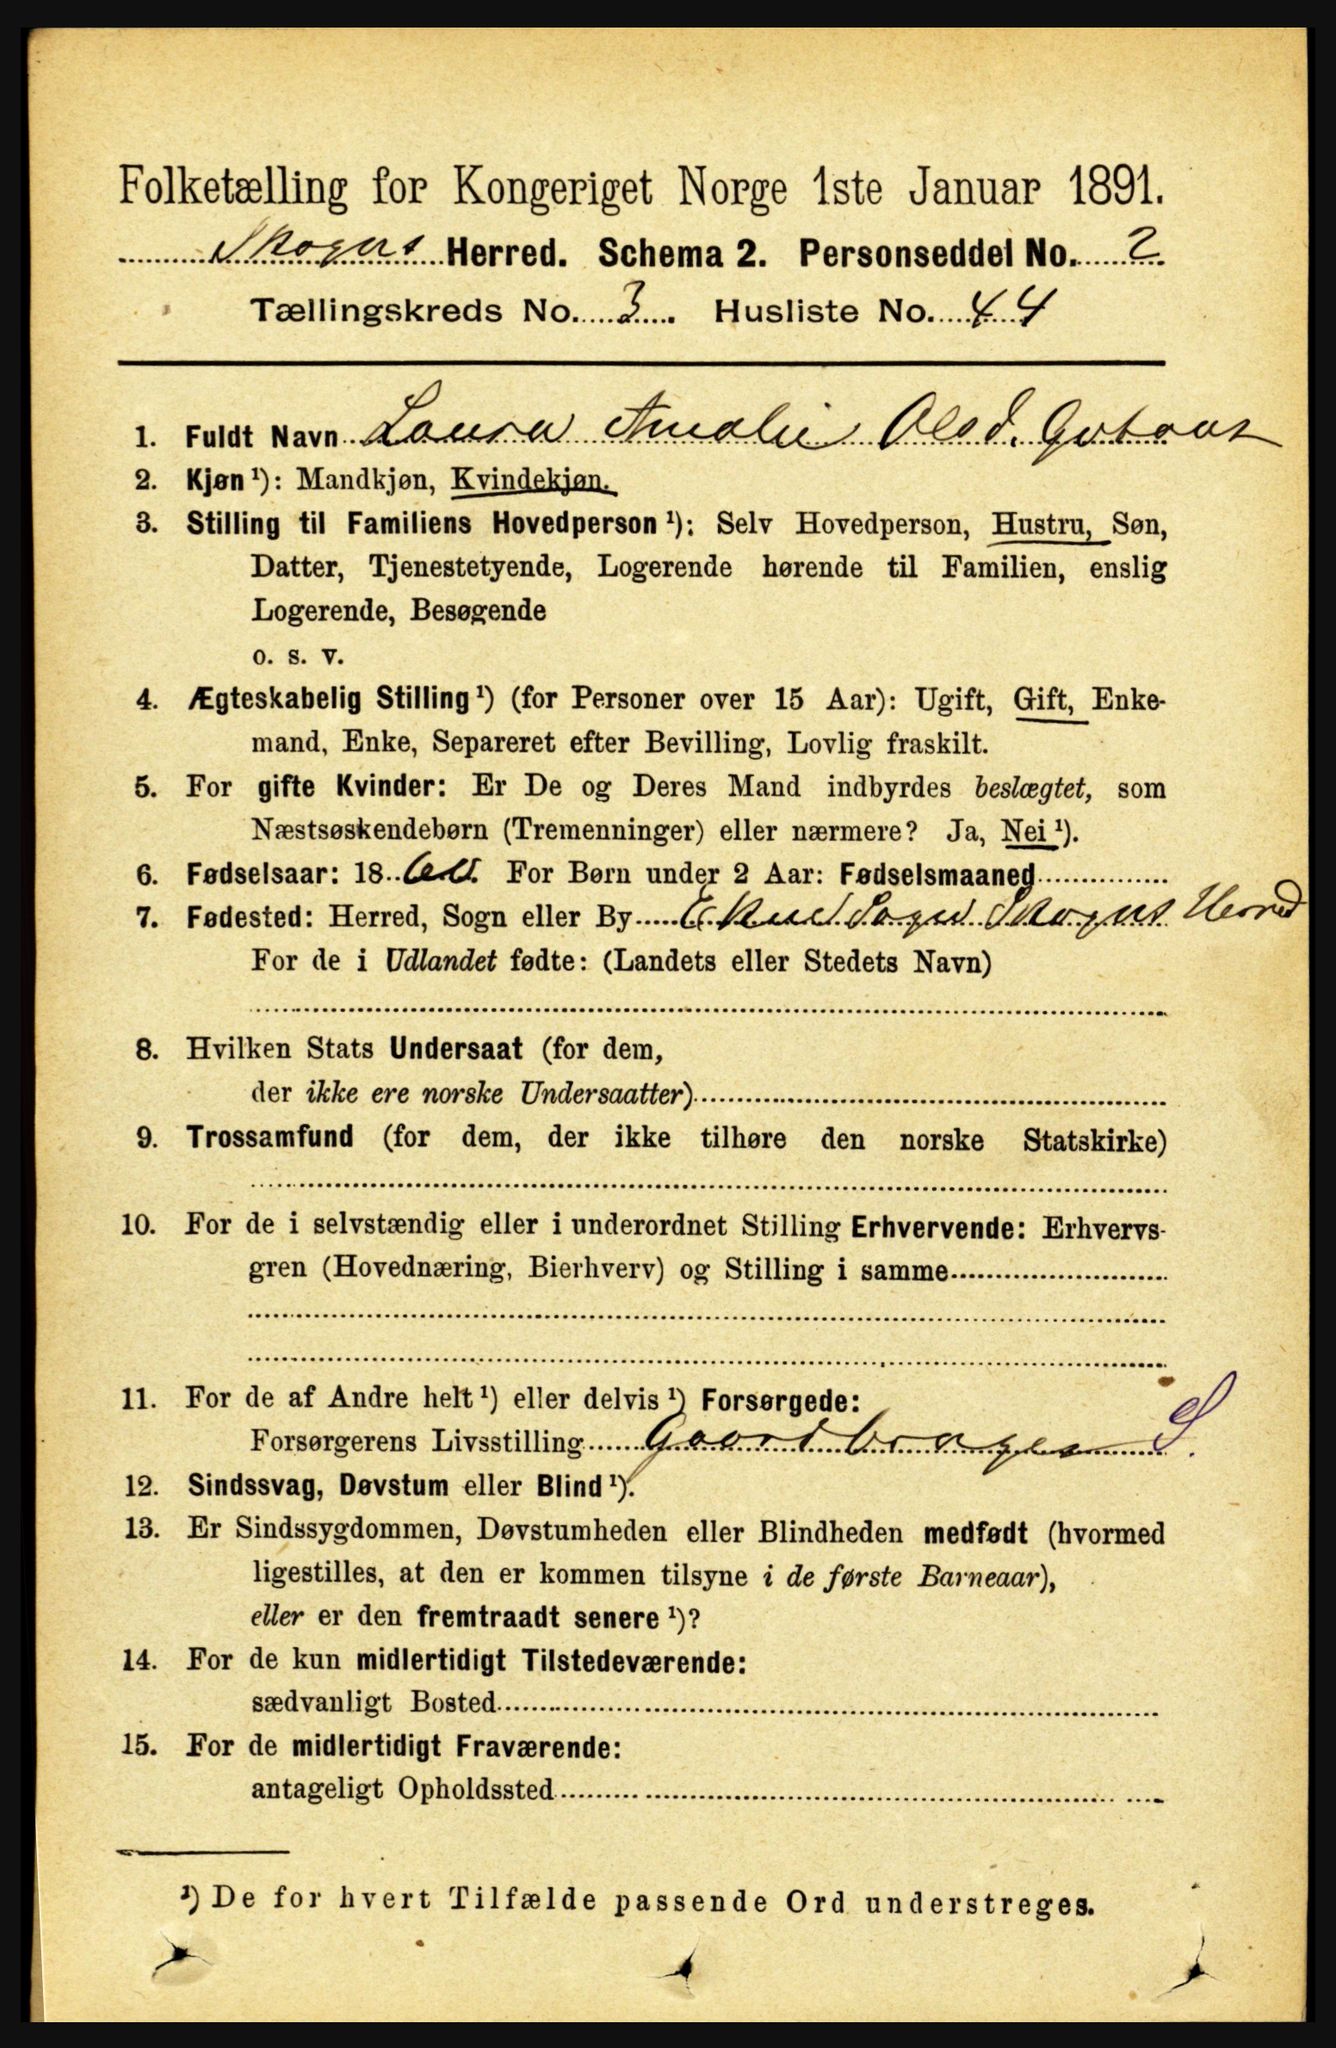 Folketælling for Kongeriget Norge 1ste Januar 1891.
Skogns Herred. Schema 2. Personseddel No. 2
Tællingskreds No. 3. Husliste No. 44
1. Fuldt Navn Laura Amalie Olsd.
2. Kjøn ¹): Mandkjøn, Kvindekjøn.
3. Stilling til Familiens Hovedperson ¹): Selv Hovedperson, Hustru, Søn,
Datter, Tjenestetyende, Logerende hørende til Familien, enslig
Logerende, Besøgende
o. s. v.
4. Ægteskabelig Stilling ¹) (for Personer over 15 Aar): Ugift, Gift, Enke-
mand, Enke, Separeret efter Bevilling, Lovlig fraskilt.
5. For gifte Kvinder: Er De og Deres Mand indbyrdes beslægtet, som
Næstsøskendebørn (Tremenninger) eller nærmere? Ja, Nei ¹).
6. Fødselsaar: 1860. For Børn under 2 Aar: Fødselsmaaned
7. Fødested: Herred, Sogn eller By Ekne Sogn Skogns Herred
For de i Udlandet fødte: (Landets eller Stedets Navn)
8. Hvilken Stats Undersaat (for dem,
der ikke ere norske Undersaatter)
9. Trossamfund (for dem, der ikke tilhøre den norske Statskirke)
10. For de i selvstændig eller i underordnet Stilling Erhvervende: Erhvervs-
gren (Hovednæring, Bierhverv) og Stilling i samme
11. For de af Andre helt ¹) eller delvis ¹) Forsørgede:
Forsørgerens Livsstilling Gaardbruger S.
12. Sindssvag, Døvstum eller Blind ¹).
13. Er Sindssygdommen, Døvstumheden eller Blindheden medfødt (hvormed
ligestilles, at den er kommen tilsyne i de første Barneaar),
eller er den fremtraadt senere ¹)?
14. For de kun midlertidigt Tilstedeværende:
sædvanligt Bosted
15. For de midlertidigt Fraværende:
antageligt Opholdssted
¹) De for hvert Tilfælde passende Ord understreges.